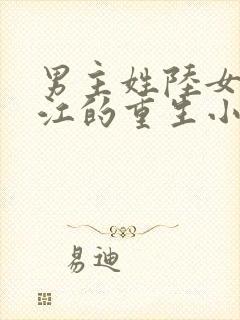 男主姓陸女
江的重生小
易迪